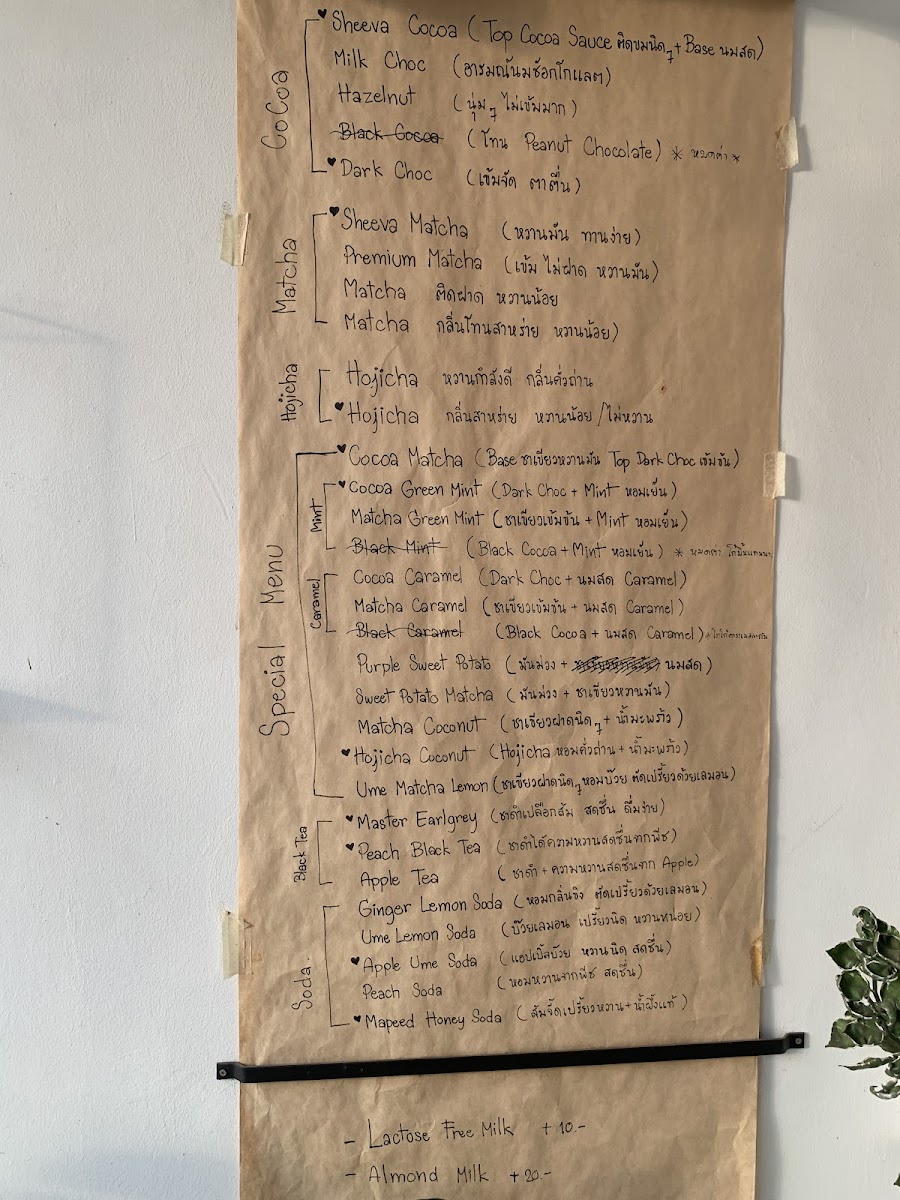 CoCoa
♥ Sheeva Cocoa (Top Cocoa Sauce ติดขมนิดๆ + Base นมสด)
Milk Choc (อารมณ์นมช็อกโกแลต)
Hazelnut (นุ่มๆ ไม่เข้มมาก)
Black Cocoa (โทน Peanut Chocolate) * หมดค่า *
♥ Dark Choc (เข้มจัด ตาตื่น)
Matcha
♥ Sheeva Matcha (หวานมัน ทานง่าย)
Premium Matcha (เข้ม ไม่ฝาด หวานมัน)
Matcha ติดฝาด หวานน้อย
Matcha กลิ่นโทนสาหร่าย หวานน้อย)
Hojicha
Hojicha หวานกำลังดี กลิ่นคั่วถ่าน
♥ Hojicha กลิ่นสาหร่าย หวานน้อย/ไม่หวาน
Special Menu
♥ Cocoa Matcha (Base ชาเขียวหวานมัน Top Dark Choc เข้มข้น)
Mint
♥ Cocoa Green Mint (Dark Choc + Mint หอมเย็น)
Matcha Green Mint (ชาเขียวเข้มข้น + Mint หอมเย็น)
Black Mint (Black Cocoa + Mint หอมเย็น) * หมดค่า
Caramel
Cocoa Caramel (Dark Choc + นมสด Caramel)
Matcha Caramel (ชาเขียวเข้มข้น + นมสด Caramel)
Black Caramel (Black Cocoa + นมสด Caramel)
Purple Sweet Potato (มันม่วง + นมสด)
Sweet Potato Matcha (มันม่วง + ชาเขียวหวานมัน)
Matcha Coconut (ชาเขียวฝาดนิดๆ + น้ำมะพร้าว)
♥ Hojicha Coconut (Hojicha หอมคั่วถ่าน + น้ำมะพร้าว)
Ume Matcha Lemon (ชาเขียวฝาดนิดๆ หอมบ๊วย ตัดเปรี้ยวด้วยเลมอน)
Black Tea
♥ Master Earlgrey (ชาดำเปลือกส้ม สดชื่น ดื่มง่าย)
♥ Peach Black Tea (ชาดำได้ความหวานสดชื่นจากพีช)
Apple Tea (ชาดำ + ความหวานสดชื่นจาก Apple)
Soda.
Ginger Lemon Soda (หอมกลิ่นขิง ตัดเปรี้ยวด้วยเลมอน)
Ume Lemon Soda (บ๊วยเลมอน เปรี้ยวนิด หวานหน่อย)
♥ Apple Ume Soda (แอปเปิ้ลบ๊วย หวานนิด สดชื่น)
Peach Soda (หอมหวานจากพีช สดชื่น)
♥ Mapeed Honey Soda (ส้มจี๊ดเปรี้ยวหวาน + น้ำผึ้งแท้)
- Lactose Free Milk +10.-
- Almond Milk +20.-